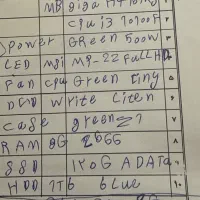 MB giga H410
cpu i3 10100F ۲
power GReen 500w ۳
LED Mgi M9-22 Full HD ۴
Fan cpu Green tiny ۵
DVD Write Liten ۶
case green Z1 ۷
RAM 8G 2666 ۸
SSD ۱۲۰G ADATA ۹
HDD 1TB blue ۱۰